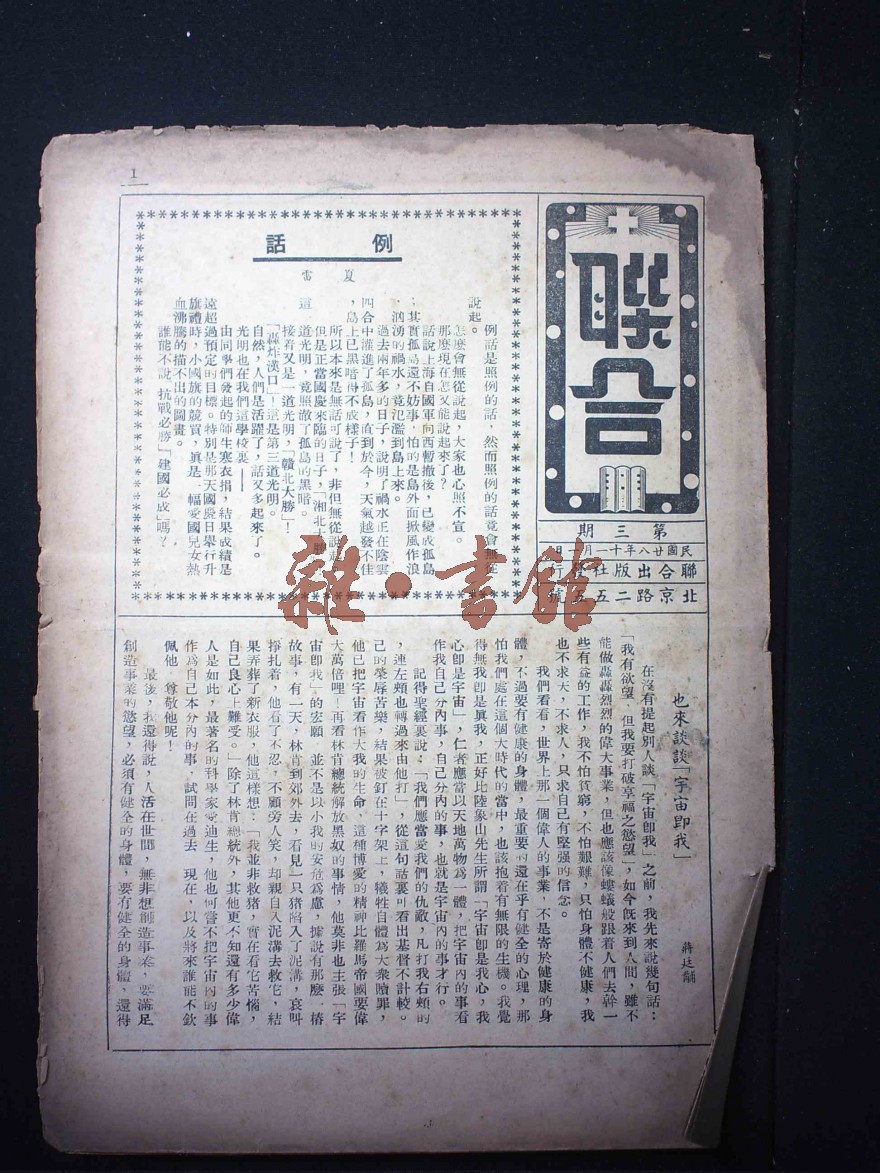 1
聯合
第三期
民國廿八年十一月一日
聯合出版社發行
北京路二五五號
例話
夏雷
例話是照例的話，然而照例的話竟會無從
說起。
怎麼會無從說起，大家也心照不宣。
那麽現在怎又能說起來了？
話說上海自國軍向西暫撤後，已變成孤島
；其實孤島還不妨事，怕的是島外面掀風作浪
、汹湧的禍水，竟氾濫到島上來。
過去兩年多的日子，說明了禍水正在陰雲
四合中灌進了孤島，直到於今，天氣越發不佳
，島上已黑暗得不成樣子！
所以本來是無話可說了，非但無從說起
但是正當國慶來臨的日子，「湘北大勝
這一道光明，竟照澈了孤島的黑暗。
接着又是一道光明，「贛北大勝」！
「轟炸漢口」，這是第三道光明。
自然，人們是活躍了，話又多起來了。
光明也在我們這學校裏——
由同學們發起的師生寒衣捐，結果成績是
遠超過預定的目標。特別是那天國慶日舉行升
旗禮時，小國旗的競買，眞是一幅愛國兒女熱
血沸騰的描不出的圖畫。
誰能不說「抗戰必勝」「建國必成」嗎？
也來談談「宇宙即我」
蔣廷黼
在沒有提起別人談「宇宙即我」之前，我先來說幾句話：
「我有欲望，但我要打破享福之慾望」，如今旣來到人間，雖不
能做轟轟烈烈的偉大事業，但也應該像螻蟻般跟着人們去幹一
些有益的工作，我不怕貧窮，不怕艱難，只怕身體不健康，我
也不求天，不求人，只求自己有堅强的信念。
我們看看，世界上那一個偉人的事業，不是寄於健康的身
體，不過要有健康的身體，最重要的還在乎有健全的心理，那
怕我們處在這個大時代的當中，也該抱着有無限的生機。我覺
得無我卽是眞我，正好比陸象山先生所謂「宇宙卽是我心，我
心卽是宇宙」，仁者應當以天地萬物爲一體，把宇宙內的事看
作我自己分內事，自己分內的事，也就是宇宙內的事才行。
記得聖經裏說：「我們應當愛我們的仇敵，凡打我右頰的
，連左頰也轉過來由他打」，從這句話裏可看出基督不計較。
己的榮辱苦樂，結果被釘在十字架上，犠牲自體爲大衆贖罪，
他已把宇宙看作大我的生命，這種博愛的精神比羅馬帝國要偉
大萬倍哩！再看林肯總統解放黑奴的事情，他莫非也主張「宇
宙卽我」的宏願，並不是以小我的安危爲慮，據說有那麽一樁
故事，有一天，林肯到郊外去，看見一只猪陷入了泥溝，哀叫
掙扎着，他看了不忍，不顧旁人笑，却親自入泥溝去救它，結
果弄葬了新衣服，他這樣想：「我並非救猪，實在看它苦惱，
自己良心上難受。」除了林肯總統外，其他更不知還有多少偉
人是如此，最著名的科學家愛迪生，他也何嘗不把宇宙內的事
作爲自己本分內的事，試問在過去，現在，以及將來誰能不欽
佩他，尊敬他呢！
最後，我還得說，人活在世間，無非想創造事業，要滿足
創造事業的慾望，必須有健全的身體，要有健全的身體，還得
雜·書館